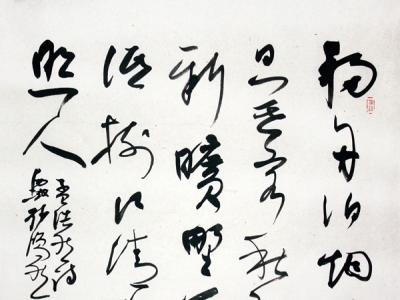 移舟泊烟
日暮客愁
新曠野
低树江清
照人
孟浩然诗